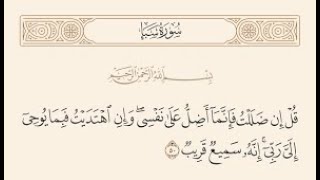 سُورَةُ سَبَإٍ
بِسْمِ ٱللَّهِ ٱلرَّحْمَٰنِ ٱلرَّحِيمِ
قُلْ إِن ضَلَلْتُ فَإِنَّمَآ أَضِلُّ عَلَىٰ نَفْسِىۖ وَإِنِ ٱهْتَدَيْتُ فَبِمَا يُوحِىٓ
إِلَىَّ رَبِّىٓۚ إِنَّهُۥ سَمِيعٌ قَرِيبٌ ٥٠